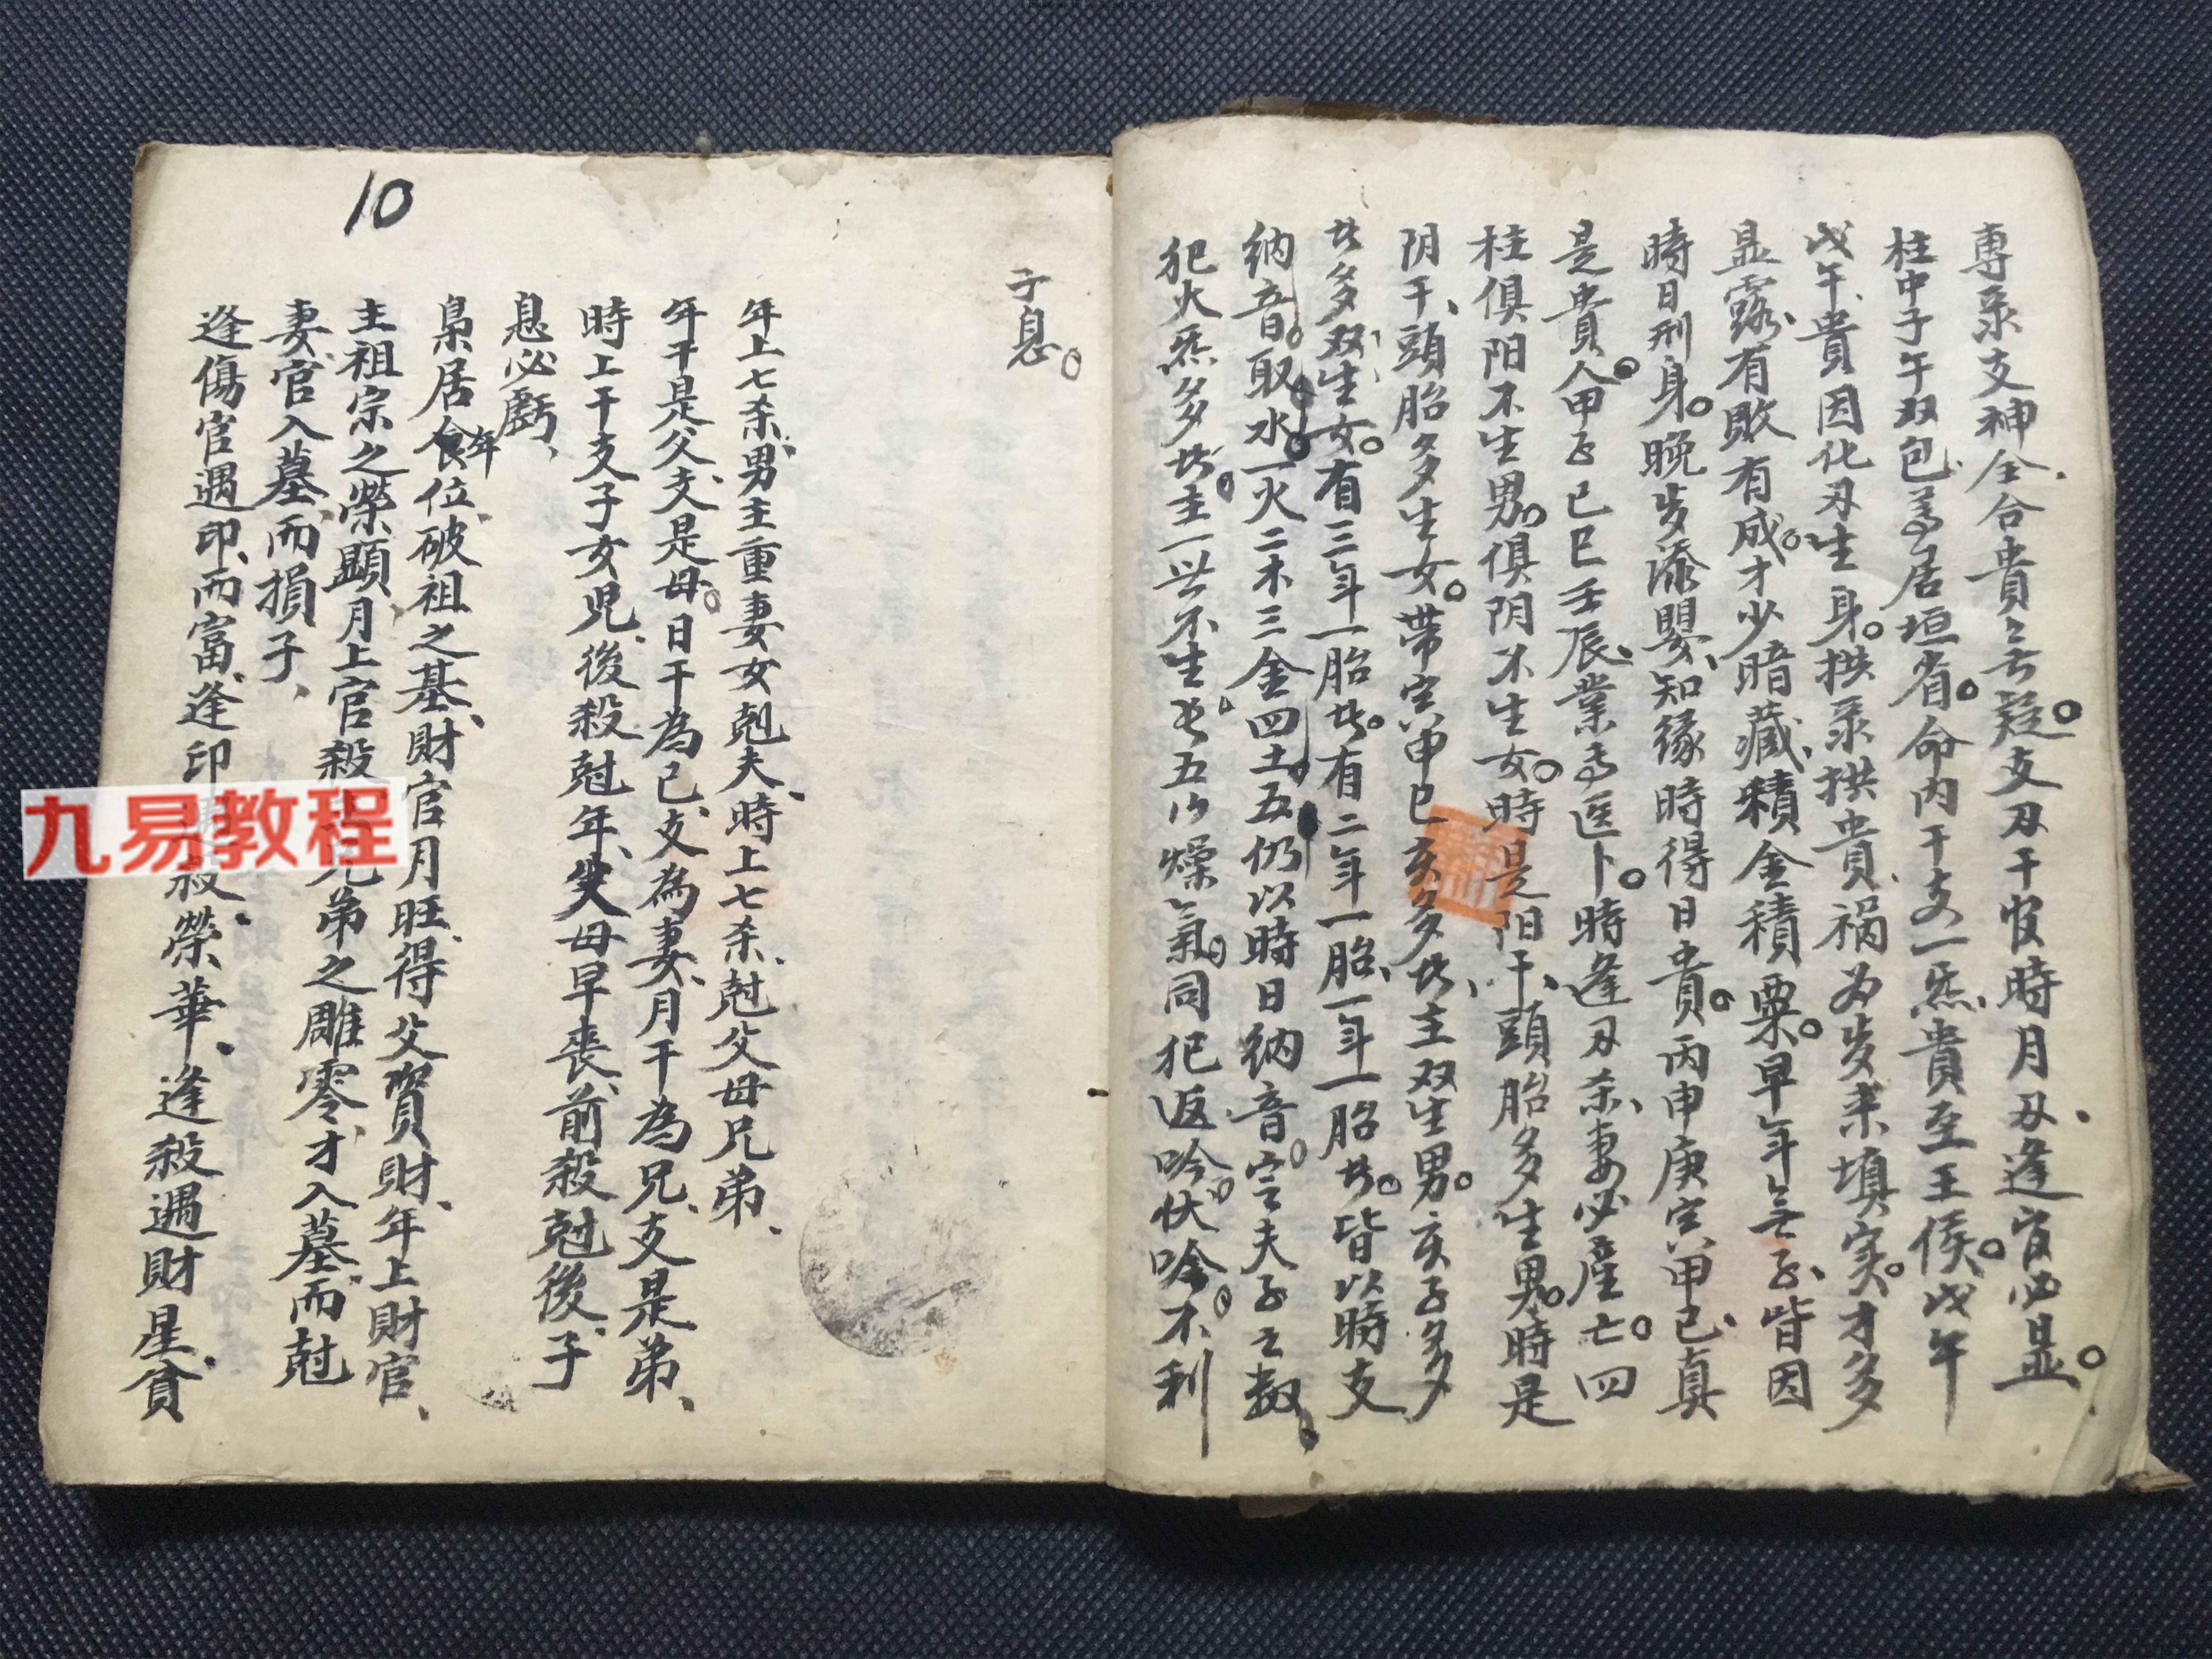 專彔支神全合貴〻云疑支刃干官時月刃逢官必显
柱中子午双包為居垣省命内干支一炁貴至王侯戊午
戊午貴因化刃生身拱彔拱貴祸为岁来填実才多
显露有敗有成才少暗藏積金積粟早年無子皆因
時日刑身晚岁添嬰知緣時得日貴丙申庚寅甲己真
是貴人甲子己巳壬辰業為医卜時逢刃杀妻必產亡四
柱俱阳不生男俱阴不生女時是阳干頭胎多生男時是
阴干頭胎多生女帶寅申巳亥多共主双生男亥子多
共多双生女有三年一胎共有二年一胎一年一胎共皆以時支
納音取水一火二木三金四土五仍以時日納音定夫子之数
犯火炁多共主一世不生長五行燥氣同犯返吟伏吟不利
子息
年上七杀男主重妻女剋夫時上七杀尅父母兄弟
年干是父支是母日干為己支為妻月干為兄支是弟
時上干支子女児後殺尅年父母早喪前殺尅後子
息必虧
梟居食年位破祖之基財官月旺得父資財年上財官
主祖宗之榮顯月上官殺兄弟之雕零才入墓而尅
妻官入墓而損子
逢傷官遇印而富逢印殺榮華逢殺遇財星貪
10
九易教程